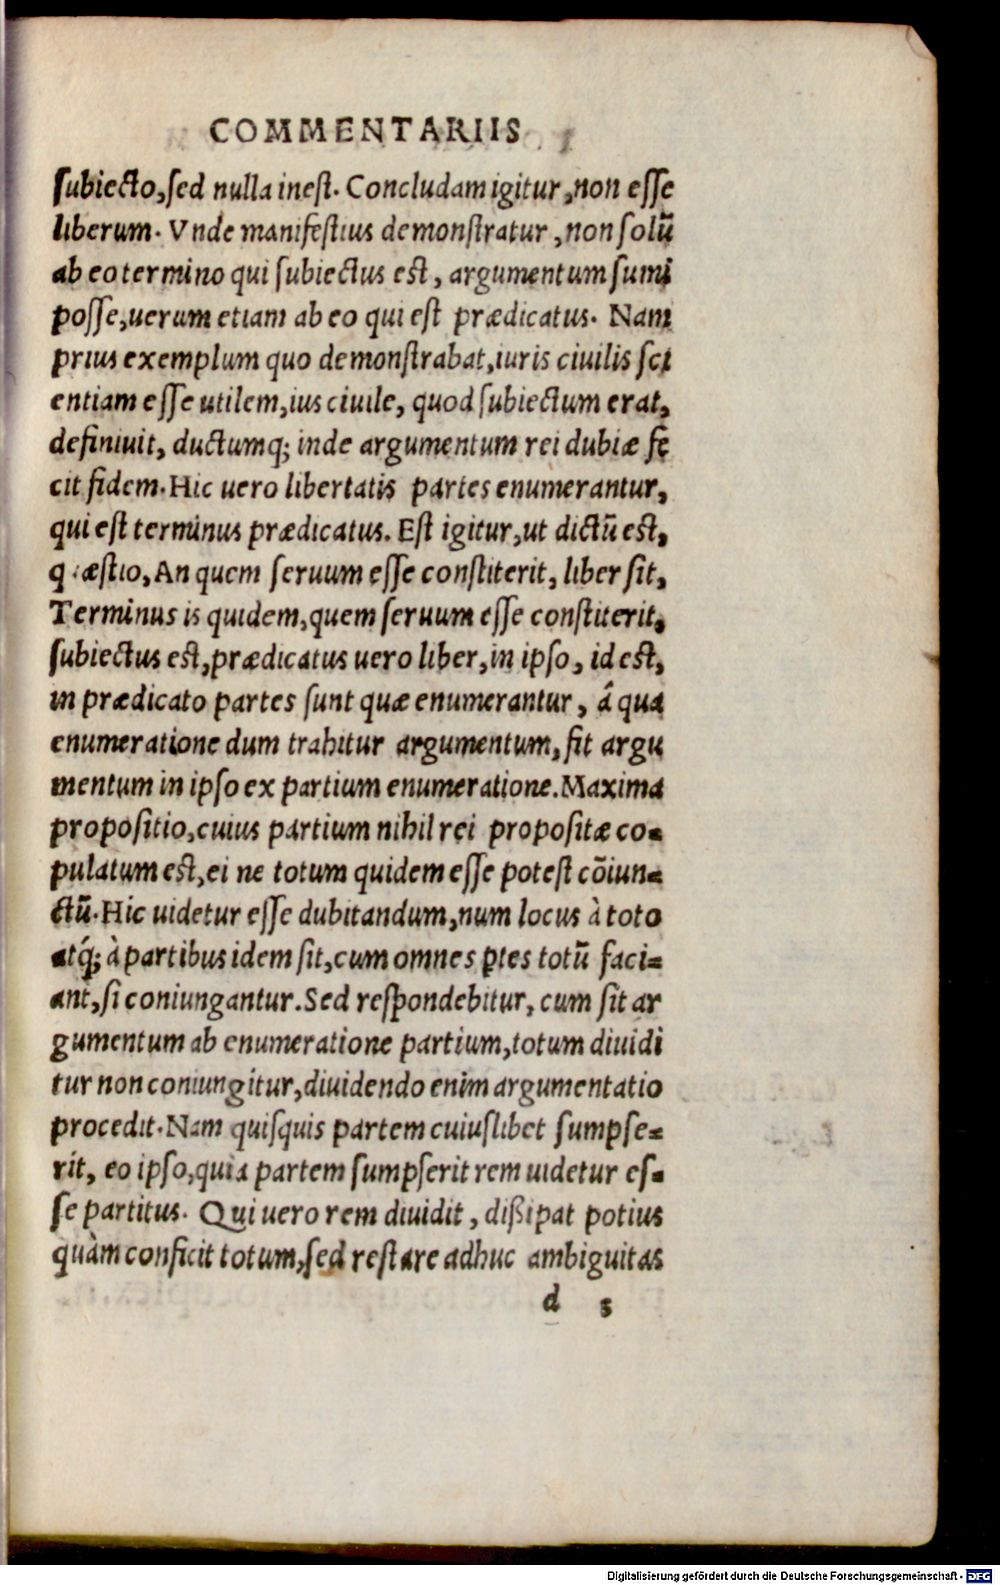 COMMENTARIIS
subiecto, sed nulla inest. Concludam igitur, non esse
liberum. Vnde manifestius demonstratur, non solũ
ab eo termino qui subiectus est, argumentum sumi
posse, uerum etiam ab eo qui est prædicatus. Nam
prius exemplum quo demonstrabat, iuris ciuilis sci
entiam esse utilem, ius ciuile, quod subiectum erat,
definiuit, ductumq; inde argumentum rei dubiæ fe
cit fidem. Hic uero libertatis partes enumerantur,
qui est terminus prædicatus. Est igitur, ut dictũ est,
quæstio, An quem seruum esse constiterit, liber sit,
Terminus is quidem, quem seruum esse constiterit,
subiectus est, prædicatus uero liber, in ipso, id est,
in prædicato partes sunt quæ enumerantur, á qua
enumeratione dum trahitur argumentum, fit argu
mentum in ipso ex partium enumeratione. Maxima
propositio, cuius partium nihil rei propositæ co-
pulatum est, ei ne totum quidem esse potest cõiun-
ctũ. Hic uidetur esse dubitandum, num locus à toto
atq́; à partibus idem sit, cum omnes ꝑtes totũ faci-
ant, si coniungantur. Sed respondebitur, cum sit ar
gumentum ab enumeratione partium, totum diuidi
tur non coniungitur, diuidendo enim argumentatio
procedit. Nam quisquis partem cuiuslibet sumpse-
rit, eo ipso, quia partem sumpserit rem uidetur es-
se partitus. Qui uero rem diuidit, dißipat potius
quàm conficit totum, sed restare adhuc ambiguitas
d 5
Digitalisierung gefördert durch die Deutsche Forschungsgemeinschaft - DFG